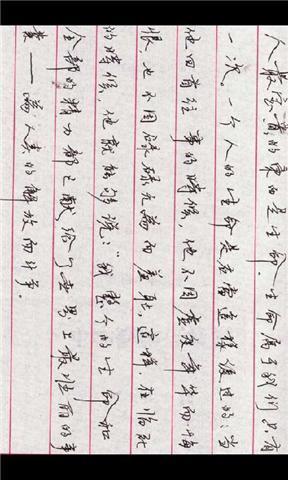 人最宝贵的东西是生命，生命属于我们只有
一次。一个人的生命是应当这样度过的：当
他回首往事的时候，他不因虚度年华而悔
恨，也不因碌碌无为而羞耻，这样在临死
的时候，他就能够说：“我整个的生命和
全部的精力都已献给了世界上最壮丽的事
业——为人类的解放而斗争。